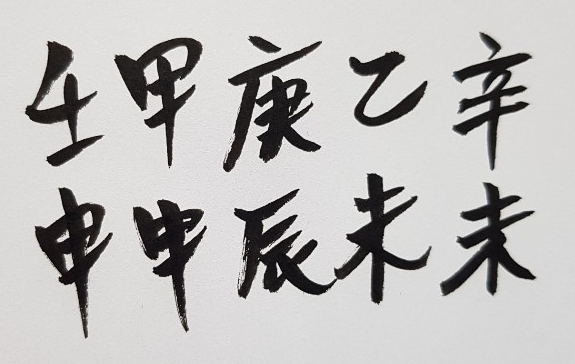 辛未
乙未
庚辰
甲申
壬申